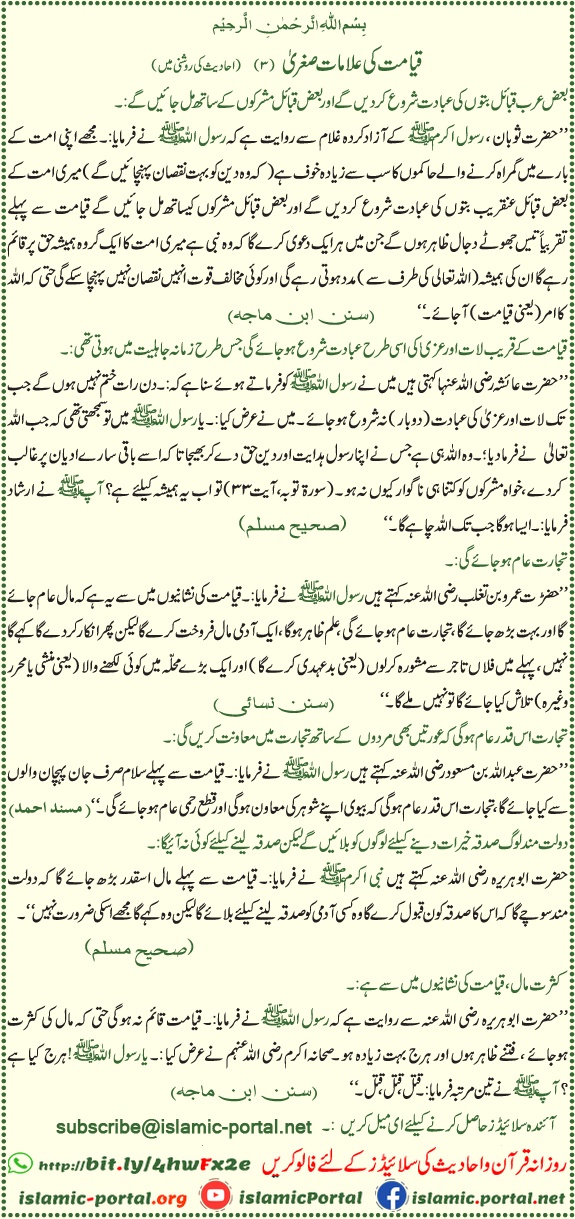 بِسْمِ اللهِ الرَّحْمٰنِ الرَّحِيْمِ
قیامت کی علامات صغریٰ (۳) (احادیث کی روشنی میں)
بعض عرب قبائل بتوں کی عبادت شروع کردیں گے اور بعض قبائل مشرکوں کے ساتھ مل جائیں گے:۔
’’حضرت ثوبان، رسول اکرم ﷺ کے آزاد کردہ غلام سے روایت ہے کہ رسول اللہ ﷺ نے فرمایا:۔ مجھے اپنی امت کے
بارے میں گمراہ کرنے والے حاکموں کا سب سے زیادہ خوف ہے (کہ وہ دین کو بہت نقصان پہنچائیں گے) میری امت کے
بعض قبائل عنقریب بتوں کی عبادت شروع کردیں گے اور بعض قبائل مشرکوں کیساتھ مل جائیں گے قیامت سے پہلے
تقریباً تیس جھوٹے دجال ظاہر ہوں گے جن میں ہر ایک دعوی کرے گا کہ وہ نبی ہے میری امت کا ایک گروہ ہمیشہ حق پر قائم
رہے گا ان کی ہمیشہ (اللہ تعالی کی طرف سے) مدد ہوتی رہے گی اور کوئی مخالف قوت انہیں نقصان نہیں پہنچا سکے گی حتی کہ اللہ
کا امر (یعنی قیامت) آجائے۔‘‘ (سنن ابن ماجه)
قیامت کے قریب لات اور عزیٰ کی اسی طرح عبادت شروع ہوجائے گی جس طرح زمانہ جاہلیت میں ہوتی تھی:۔
’’حضرت عائشہ رضی اللہ عنہا کہتی ہیں میں نے رسول اللہ ﷺ کو فرماتے ہوئے سنا ہے کہ:۔ دن رات ختم نہیں ہوں گے جب
تک لات اور عزیٰ کی عبادت (دوبار) نہ شروع ہوجائے۔ میں نے عرض کیا:۔ یا رسول اللہ ﷺ میں تو سمجھتی تھی کہ جب اللہ
تعالیٰ نے فرمادیا؛۔ وہ اللہ ہی ہے جس نے اپنا رسول ہدایت اور دین حق دے کر بھیجا تا کہ اسے باقی سارے ادیان پر غالب
کردے، خواہ مشرکوں کو کتنا ہی ناگوار کیوں نہ ہو۔ (سورۃ توبہ، آیت ۳۳) تو اب یہ ہمیشہ کیلئے ہے؟ آپ ﷺ نے ارشاد
فرمایا:۔ ایسا ہوگا جب تک اللہ چاہے گا۔‘‘ (صحیح مسلم)
تجارت عام ہوجائے گی:۔
’’حضرت عمرو بن تغلب رضی اللہ عنہ کہتے ہیں رسول اللہ ﷺ نے فرمایا:۔ قیامت کی نشانیوں میں سے یہ ہے کہ مال عام جائے
گا اور بہت بڑھ جائے گا، تجارت عام ہوجائے گی، علم ظاہر ہوگا، ایک آدمی مال فروخت کرے گا لیکن پھر انکار کر دے گا کہے گا
نہیں، پہلے میں فلاں تاجر سے مشورہ کرلوں (یعنی بدعہدی کرے گا) اور ایک بڑے محلّہ میں کوئی لکھنے والا (یعنی منشی یا محرر
وغیرہ) تلاش کیا جائے گا تو نہیں ملے گا۔‘‘ (سنن نسائی)
تجارت اس قدر عام ہوگی کہ عورتیں بھی مردوں کے ساتھ تجارت میں معاونت کریں گی:۔
’’حضرت عبداللہ بن مسعود رضی اللہ عنہ کہتے ہیں رسول اللہ ﷺ نے فرمایا:۔ قیامت سے پہلے سلام صرف جان پہچان والوں
سے کیا جائے گا، تجارت اس قدر عام ہوگی کہ بیوی اپنے شوہر کی معاون ہوگی اور قطع رحمی عام ہوجائے گی۔‘‘ (مسند احمد)
دولت مند لوگ صدقہ خیرات دینے کیلئے لوگوں کو بلائیں گے لیکن صدقہ لینے کیلئے کوئی نہ آئیگا:۔
حضرت ابوہریرہ رضی اللہ عنہ کہتے ہیں نبی اکرم ﷺ نے فرمایا:۔ قیامت سے پہلے مال اسقدر بڑھ جائے گا کہ دولت
مند سوچے گا کہ اس کا صدقہ کون قبول کرے گا وہ کسی آدمی کو صدقہ لینے کیلئے بلائے گا لیکن وہ کہے گا مجھے اسکی ضرورت نہیں‘‘۔
(صحیح مسلم)
کثرت مال، قیامت کی نشانیوں میں سے ہے:۔
’’حضرت ابوہریرہ رضی اللہ عنہ سے روایت ہے کہ رسول اللہ ﷺ نے فرمایا:۔ قیامت قائم نہ ہوگی حتی کہ مال کی کثرت
ہوجائے، فتنے ظاہر ہوں اور ہرج بہت زیادہ ہو۔ صحانہ اکرم رضی اللہ عنہم نے عرض کیا:۔ یا رسول اللہ ﷺ! ہرج کیا ہے
؟ آپ ﷺ نے تین مرتبہ فرمایا:۔ قتل، قتل، قتل۔‘‘ (سنن ابن ماجه)
آئندہ سلائیڈز حاصل کرنے کیلئے ای میل کریں:۔ subscribe@islamic-portal.net
روزانہ قرآن و احادیث کی سلائیڈز کے لئے فالو کریں http://bit.ly/4hwFx2e
islamic-portal.org islamicPortal islamic.portal.net